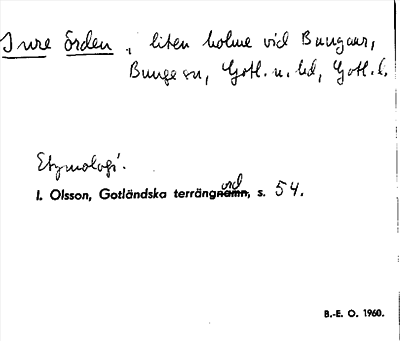 Inre Örden, liten holme vid Bungeör,
Bunge sn, Gotl. n. hd, Gotl. l.
Etymologi.
I. Olsson, Gotländska terrängnamn, s. 54.
ord
B.-E. O. 1960.